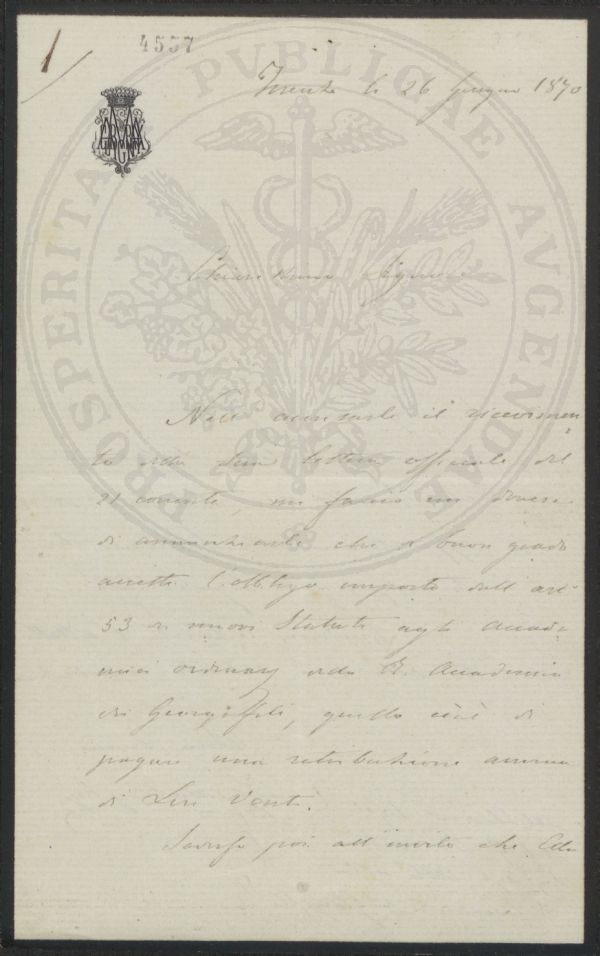 1
4557
PROSPERITATI PVBLICAE AVGENDAE
Firenze li 26 Giugno 1870
Chiarissimo Signore
Nell' accusarle il ricevimen
to della Sua lettera officiale del
21 corrente, mi faccio un dovere
di annunziarle che di buon grado
accetto l'obbligo imposto dall' art°
53 dei nuovi Statuti agli Accade
mici ordinarj della R. Accademia
dei Georgofili, quello cioè di
pagare una retribuzione annua
di Lire Venti.
poi all' invito che Ella